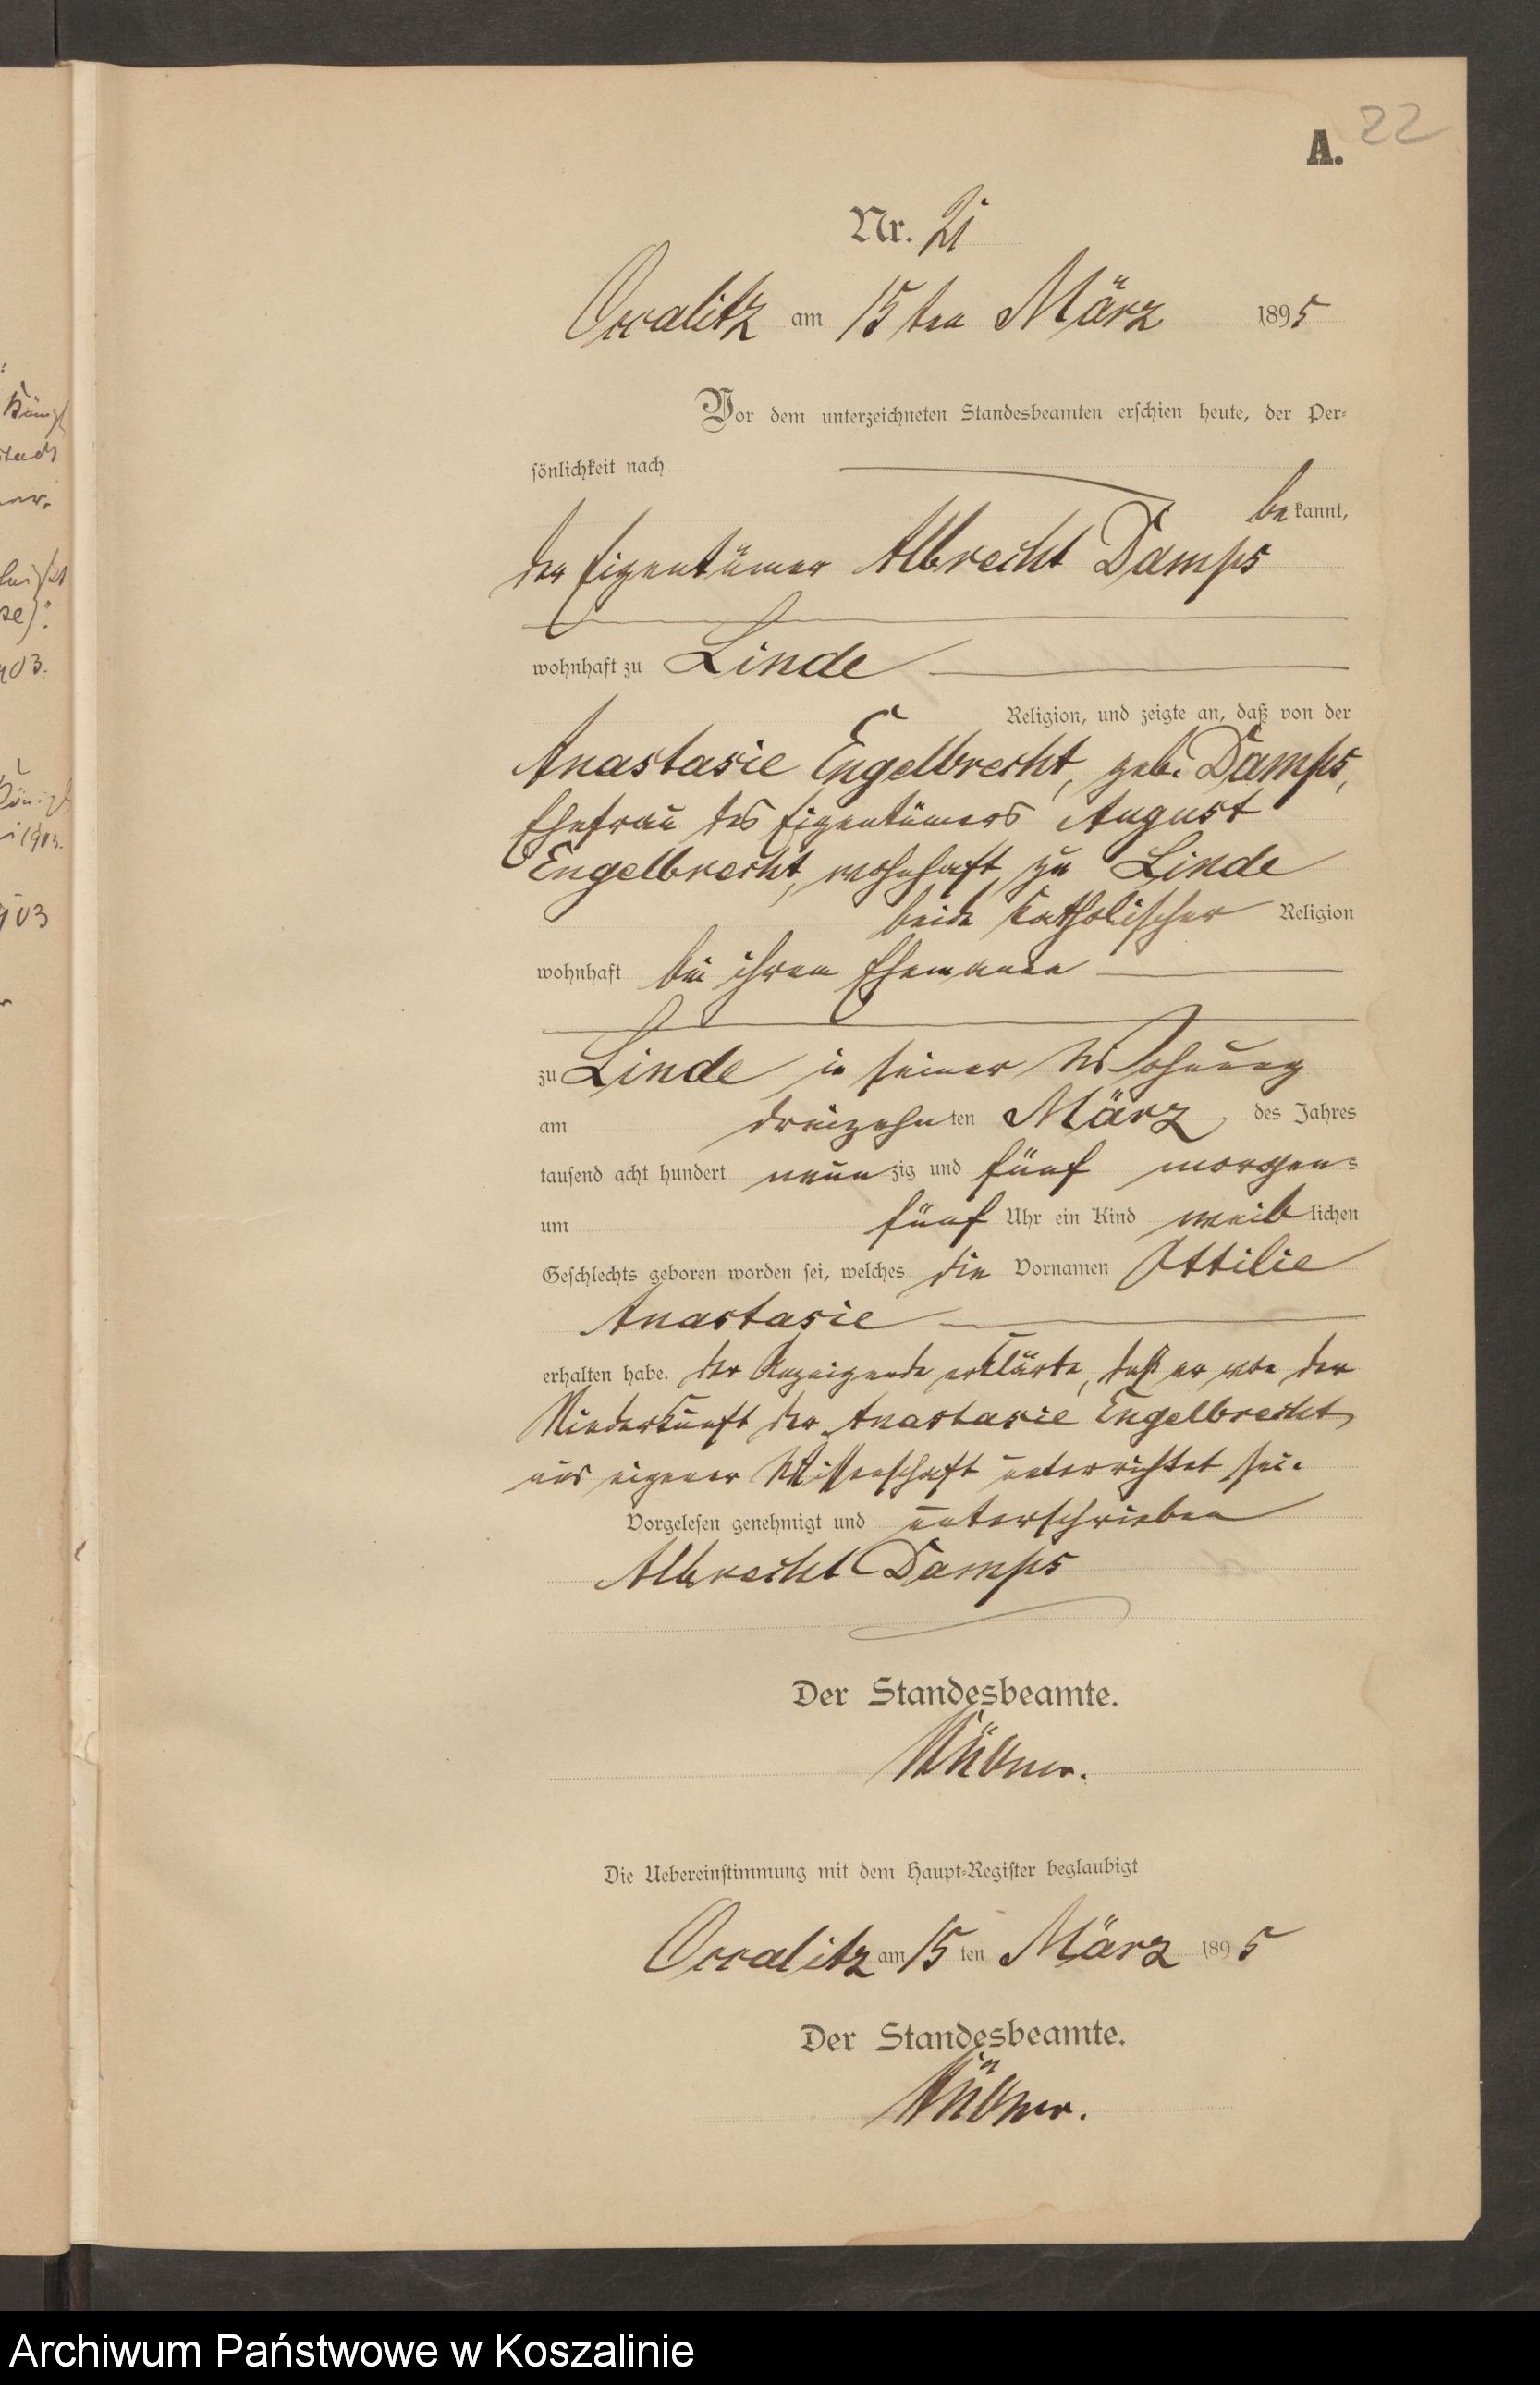 A. 22
Nr. 21
Ossalitz am 15ten März 1895
Vor dem unterzeichneten Standesbeamten erschien heute, der Per-
sönlichkeit nach
bekannt,
der Eigentümer Albrecht Damps
wohnhaft zu Linde
Religion, und zeigte an, daß von der
Anastasie Engelbrecht, geb. Damps,
Ehefrau des Eigentümers August
Engelbrecht, wohnhaft zu Linde
beide katholischer Religion
wohnhaft bei ihrem Ehemann
zu Linde in seiner Wohnung
am dreizehnten März des Jahres
tausend acht hundert neunzig und fünf morgens
um fünf Uhr ein Kind weiblichen
Geschlechts geboren worden sei, welches die Vornamen Ottilie
Anastasie
erhalten habe. Der Anzeigende erklärte, daß er von der
Niederkunft der Anastasie Engelbrecht
aus eigener Wissenschaft unterrichtet sei.
Vorgelesen genehmigt und unterschrieben
Albrecht Damps
Der Standesbeamte.
Die Uebereinstimmung mit dem Haupt-Register beglaubigt
Ossalitz am 15ten März 1895
Der Standesbeamte.
Archiwum Państwowe w Koszalinie